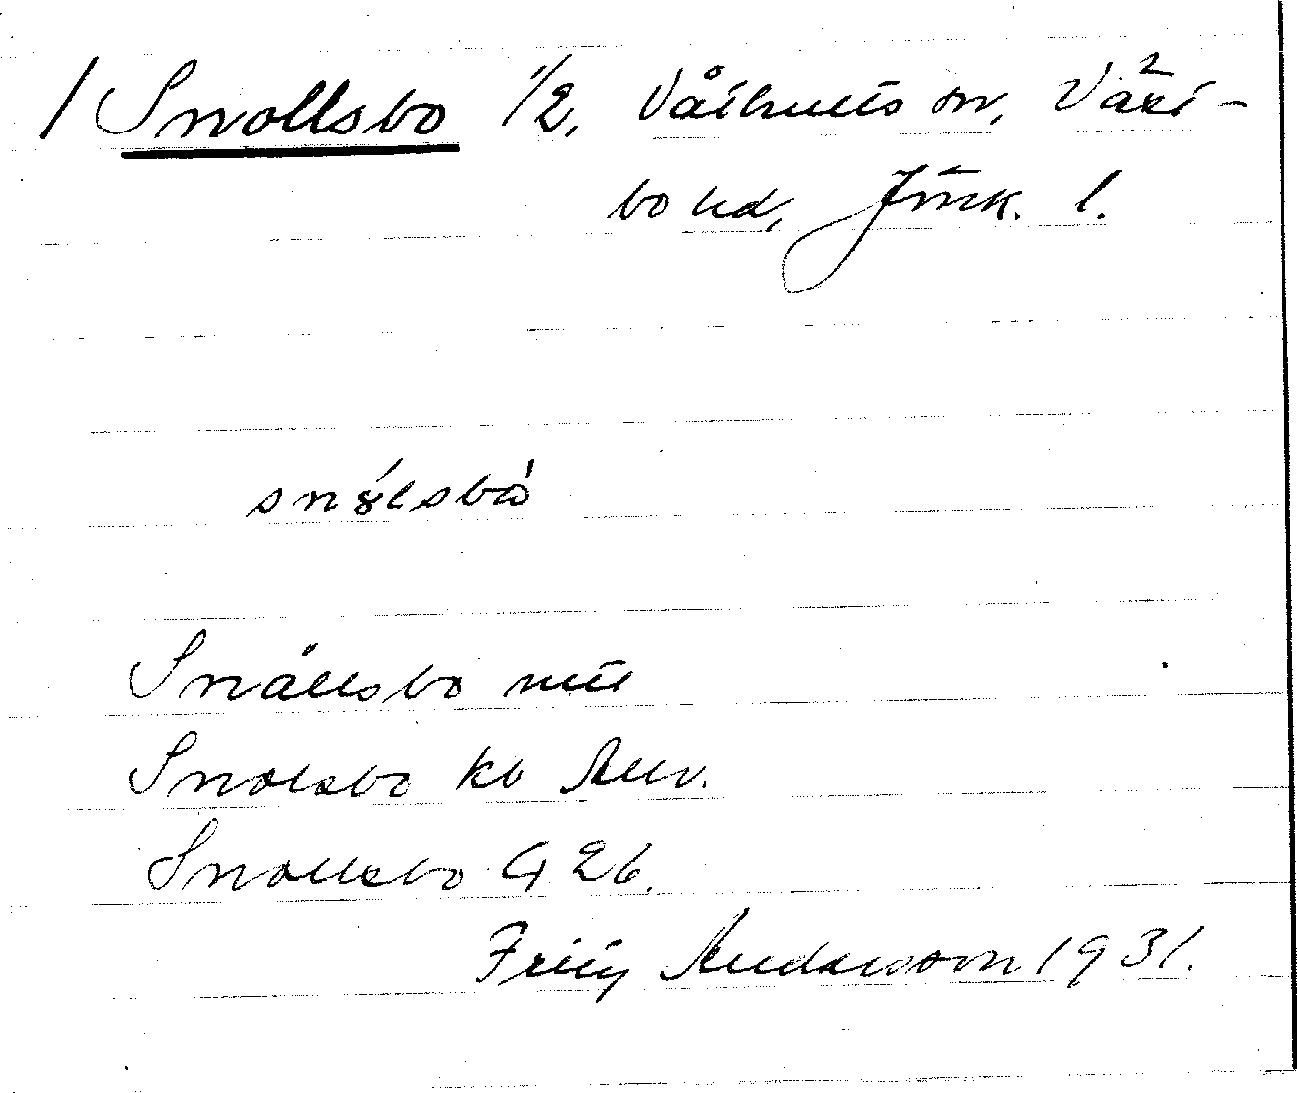 / Snollsbo 1/2, Våthults sn, Väst-
bo hd, Jönk. l.
snólsbò
Snållsbo mtl
Snolsbo kb Allv.
Snollsbo G 26.
Fritz Andersson 1931.